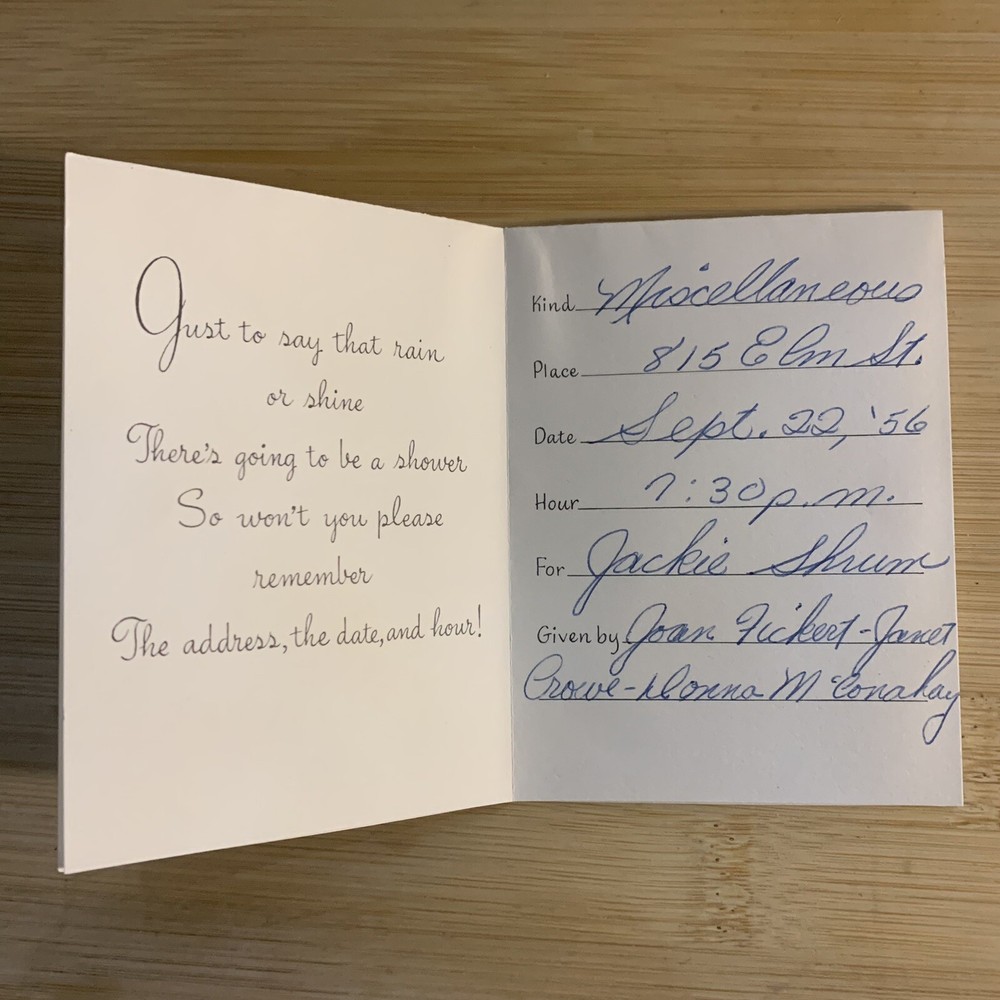 Just to say that rain
or shine
There's going to be a shower
So won't you please
remember
The address, the date, and hour!
Kind Miscellaneous
Place 815 Elm St.
Date Sept. 22, '56
Hour 7:30 p.m.
For Jackie Shrum
Given by Joan Fickert - Janet
Crowe - Donna McConahay